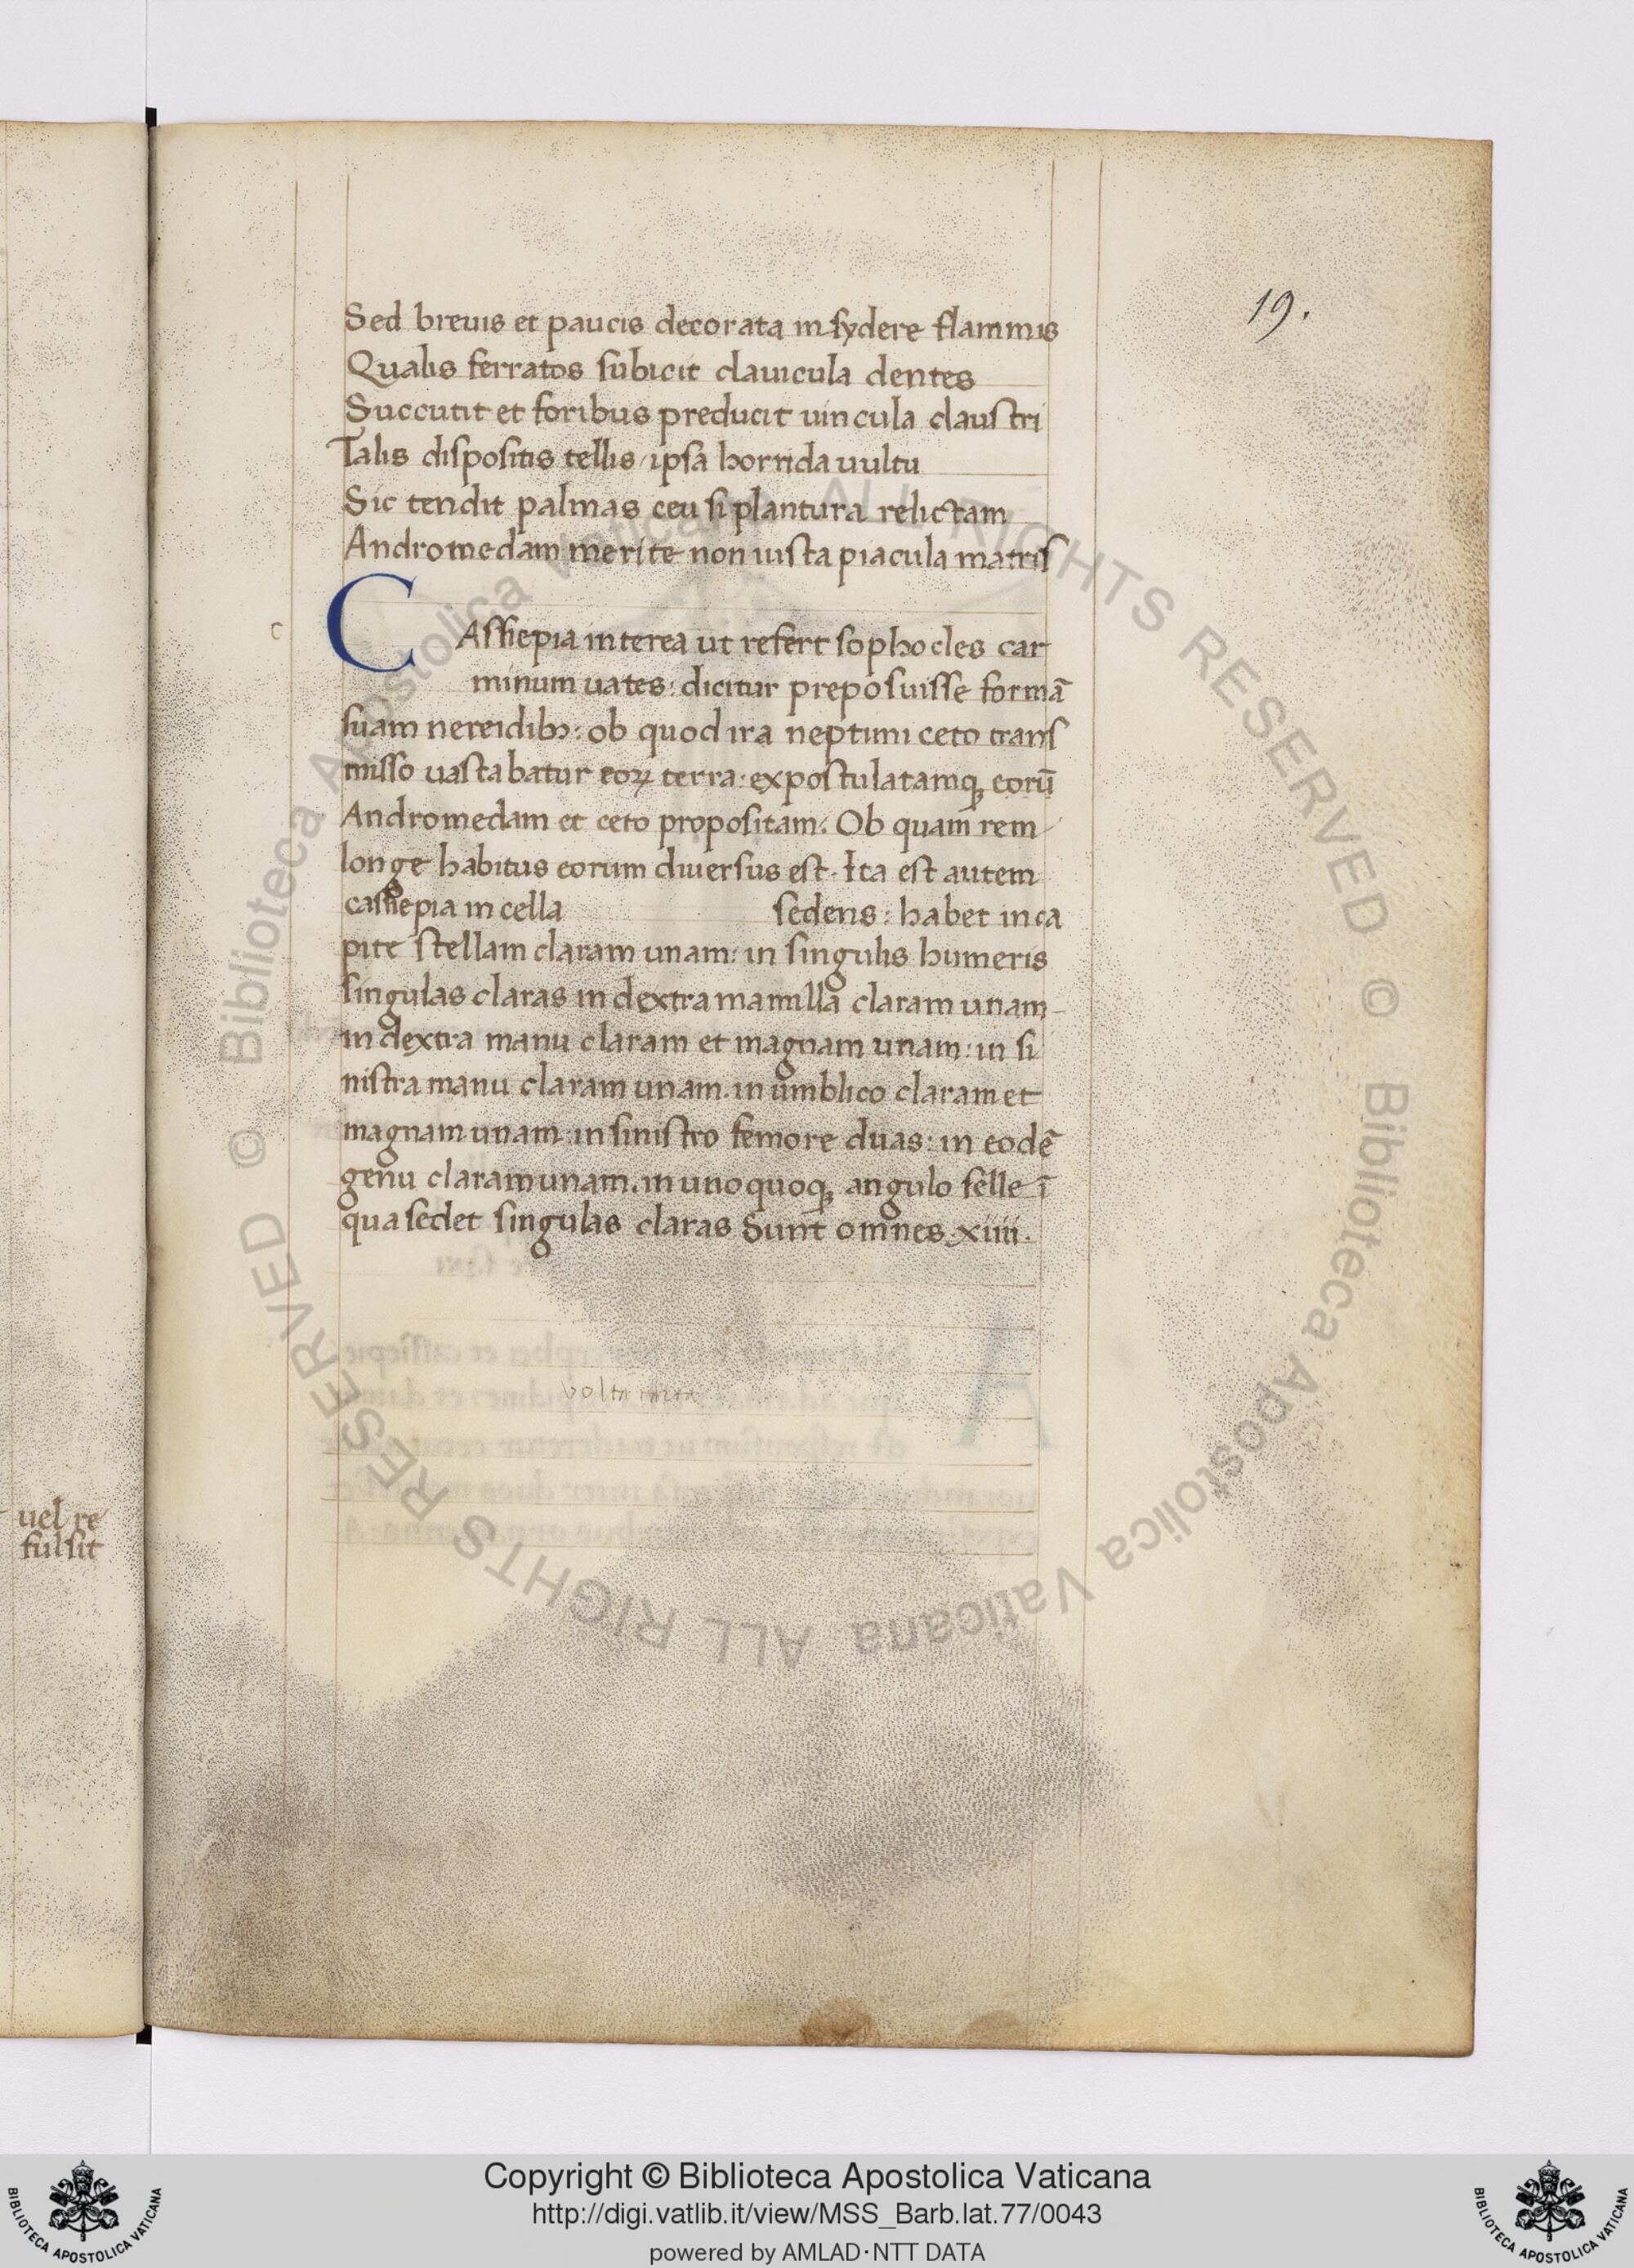 19.
Sed breuis et paucis decorata in sydere flammis
Qualis ferratos subicit clauicula dentes
Succutit et foribus preducit uincula claustri
Talis dispositis tellis / ipsa horrida uultu
Sic tendit palmas ceu si plantura relictam
Andromedam merite non iusta piacula matris
c
CAssiepia interea ut refert sophocles car
minum uates: dicitur preposuisse formā
suam nereidibꝫ: ob quod ira neptuni ceto trans
misso uastabatur eoꝝ terra: expostulatamqꝫ eorū
Andromedam et ceto propositam: Ob quam rem
longe habitus eorum diuersus est. Ita est autem
cassiepia in cella sedens: habet in ca
pite stellam claram unam: in singulis humeris
singulas claras in dextra mamilla claram unam
in dextra manu claram et magnam unam: in si
nistra manu claram unam. in umblico claram et
magnam unam in sinistro femore duas: in eodē
genu claram unam. in uno quoqꝫ angulo selle ī
qua sedet singulas claras Sunt omnes. xiiii.
uel re
fulsit
© Biblioteca Apostolica Vaticana ALL RIGHTS RESERVED © Biblioteca Apostolica Vaticana ALL RIGHTS RESERVED
BIBLIOTECA APOSTOLICA VATICANA
Copyright © Biblioteca Apostolica Vaticana
http://digi.vatlib.it/view/MSS_Barb.lat.77/0043
powered by AMLAD·NTT DATA
BIBLIOTECA APOSTOLICA VATICANA